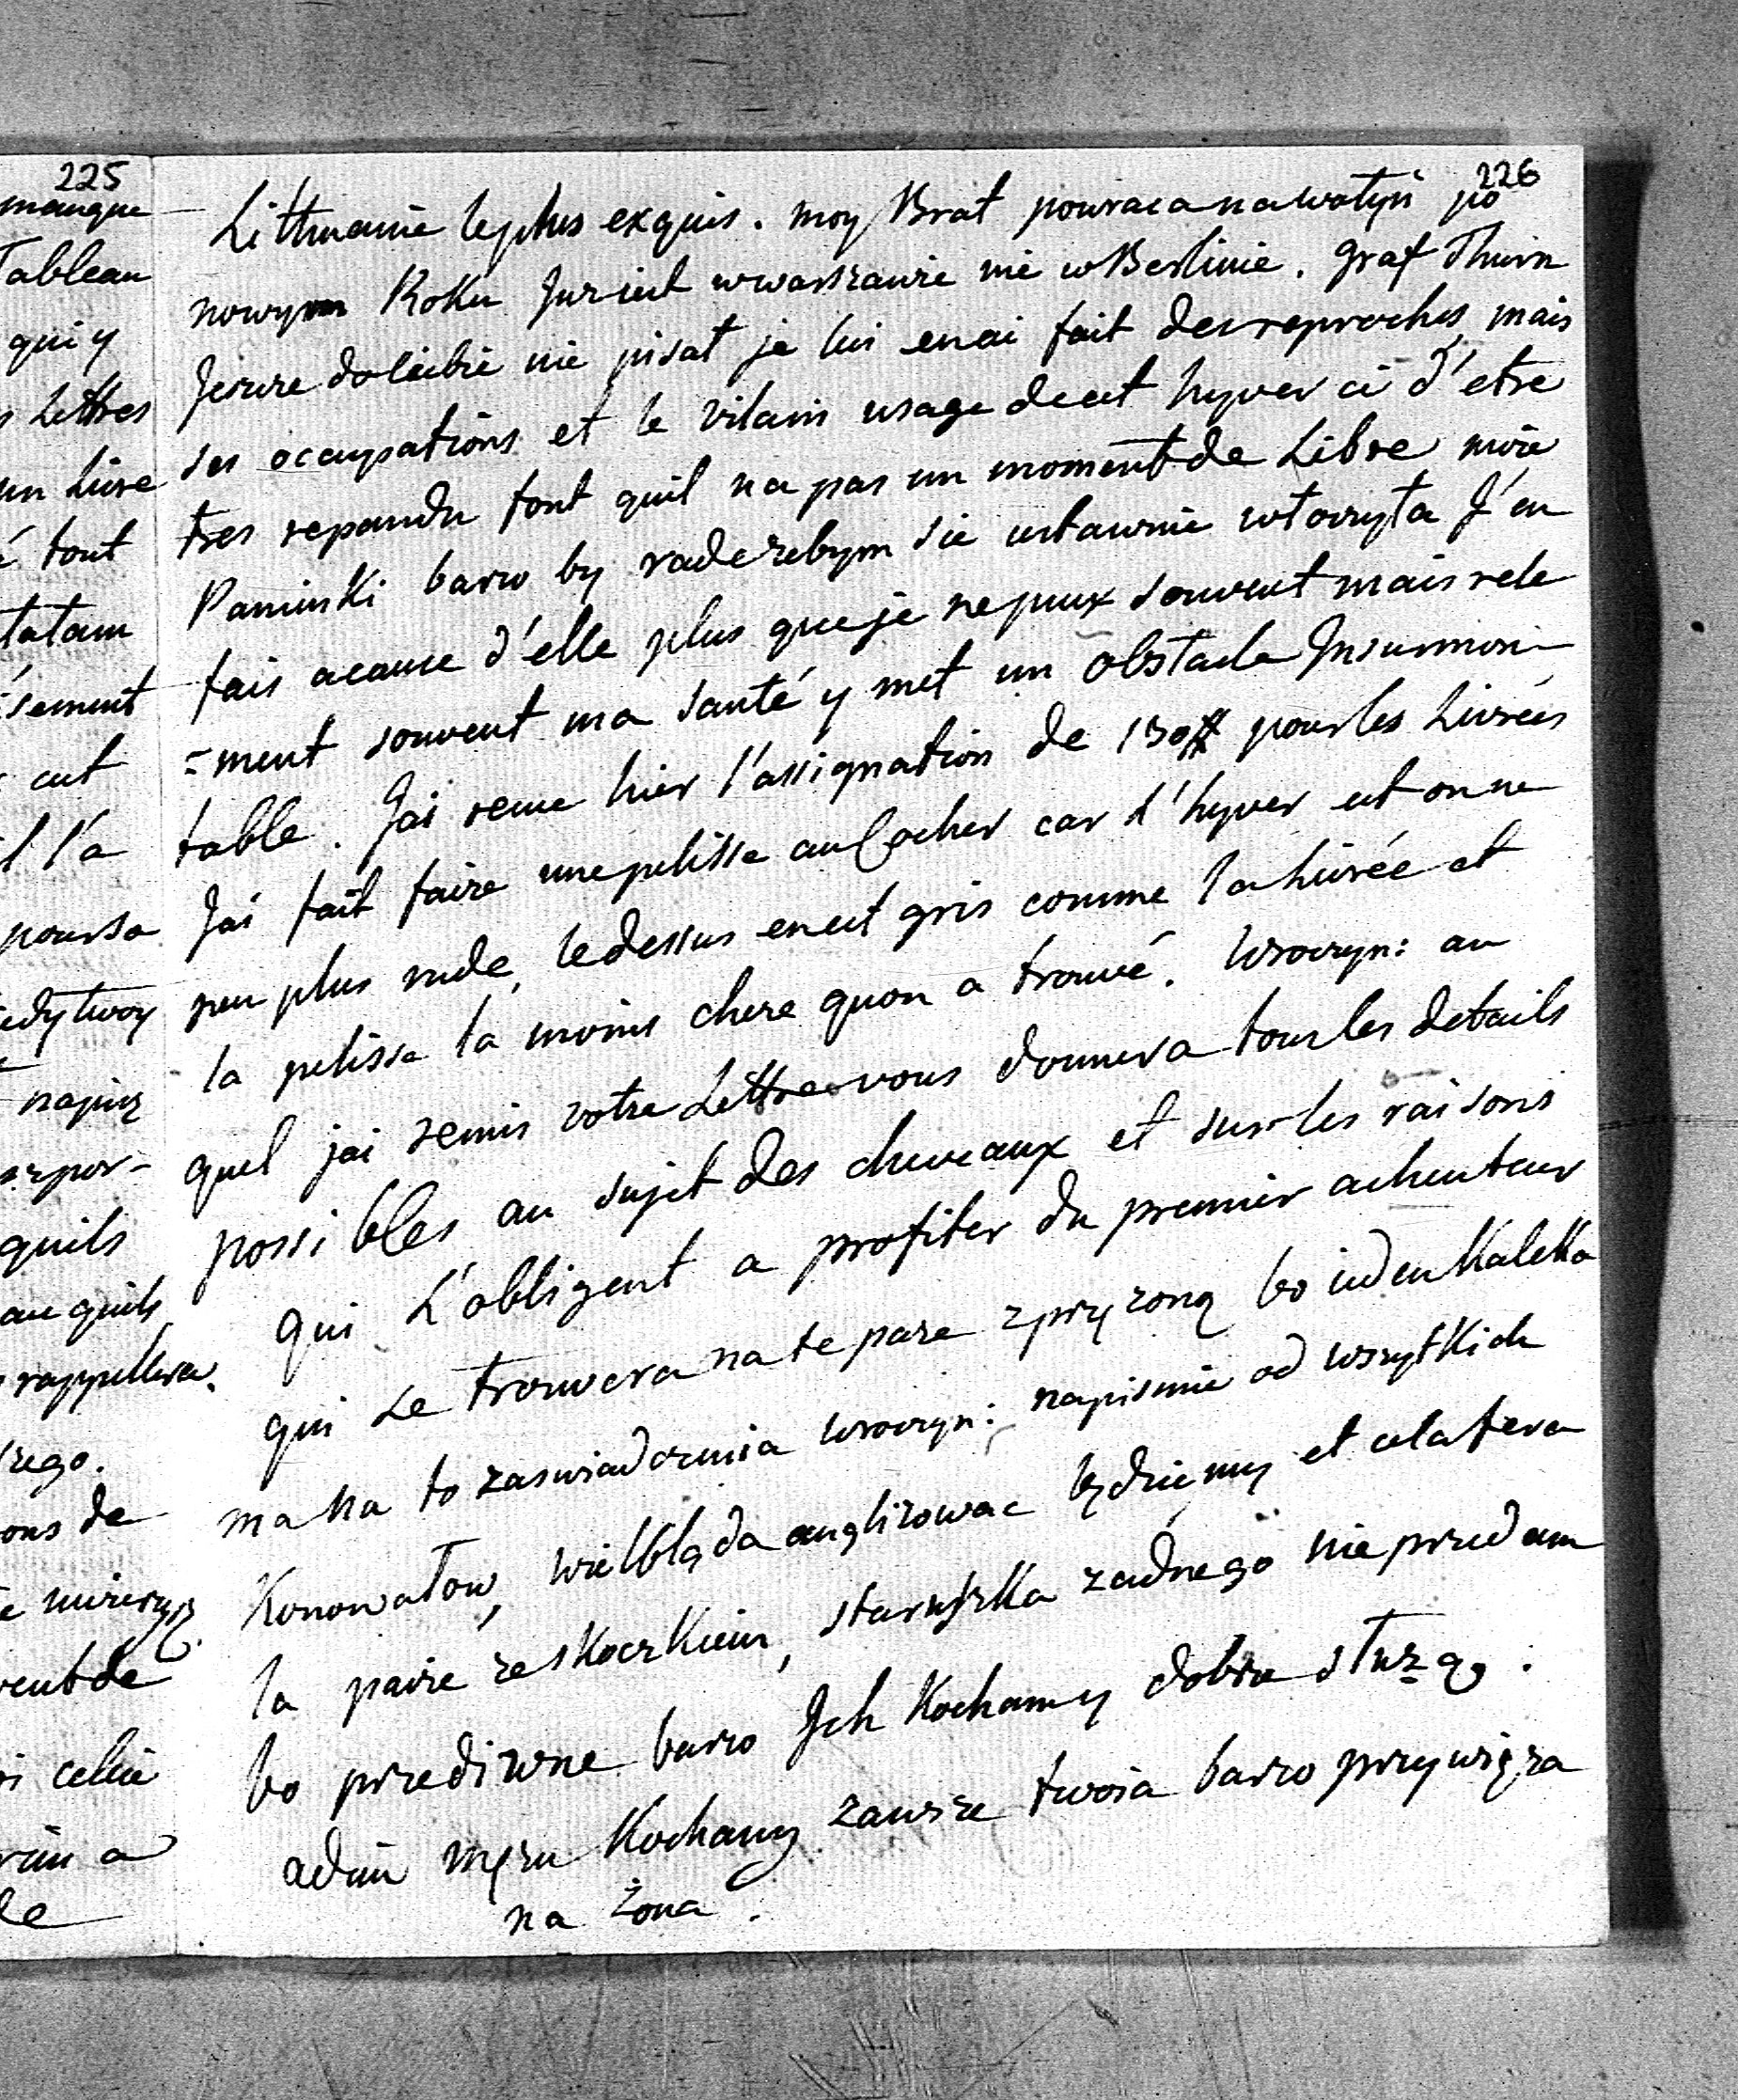 225
manque
Tableau
qui y
Lettres
un Livre
tout
tatam
sement
cut
l'a
poursa
edytwoy
napisz
quils
au quils
rappellera.
rzego.
ons de
vent de
celuie
a
le
226
Lithuanie le plus exquis. moy Brat powraca nawołyń po
nowym Roku Juz iest wwarszawie nie wBerlinie. graf Thurn
Jeszcze dociebie nie pisał je lui enai fait des reproches mais
ses occupations et le vilain usage de cet hyver ci d'etre
tres repandu font quil na pas un moment de Libre moie
Panienki barzo by rade zebym sie ustawnie włoczyła J'en
fais acause d'elle plus que je ne peux souvent mais rele
=ment souvent ma santé y met un obstacle Insurmon-
table. Jai recue hier l'assignation de 130# pour les Livrées
Jai fait faire une pelisse au Cocher car l'hyver est on ne
peu plus rude, le dessus en est gris comme la Livrée et
la pelisse la moins chere quon a trouvé. Wroczyn: au
quel jai remis votre Lettre vous donnera tous les details
possibles au sujet des cheveaux et sur les raisons
qui L'obligent a profiter du premier acheuteur
qui se trouvera na te pare zprężoną bo ieden Kaleka
ma na to zaswiadczenia Wroczyn: napismie od wszytkich
Konowałow, wielbląda anglizowac będziemy et cela fera
la paire ze skoczkiem, staruszka zadnego nie przedam
bo przedziwne barzo Ich Kochamy dobrze służą.
adiu mężu Kochany zawsze twoia barzo przywięza
na żona.